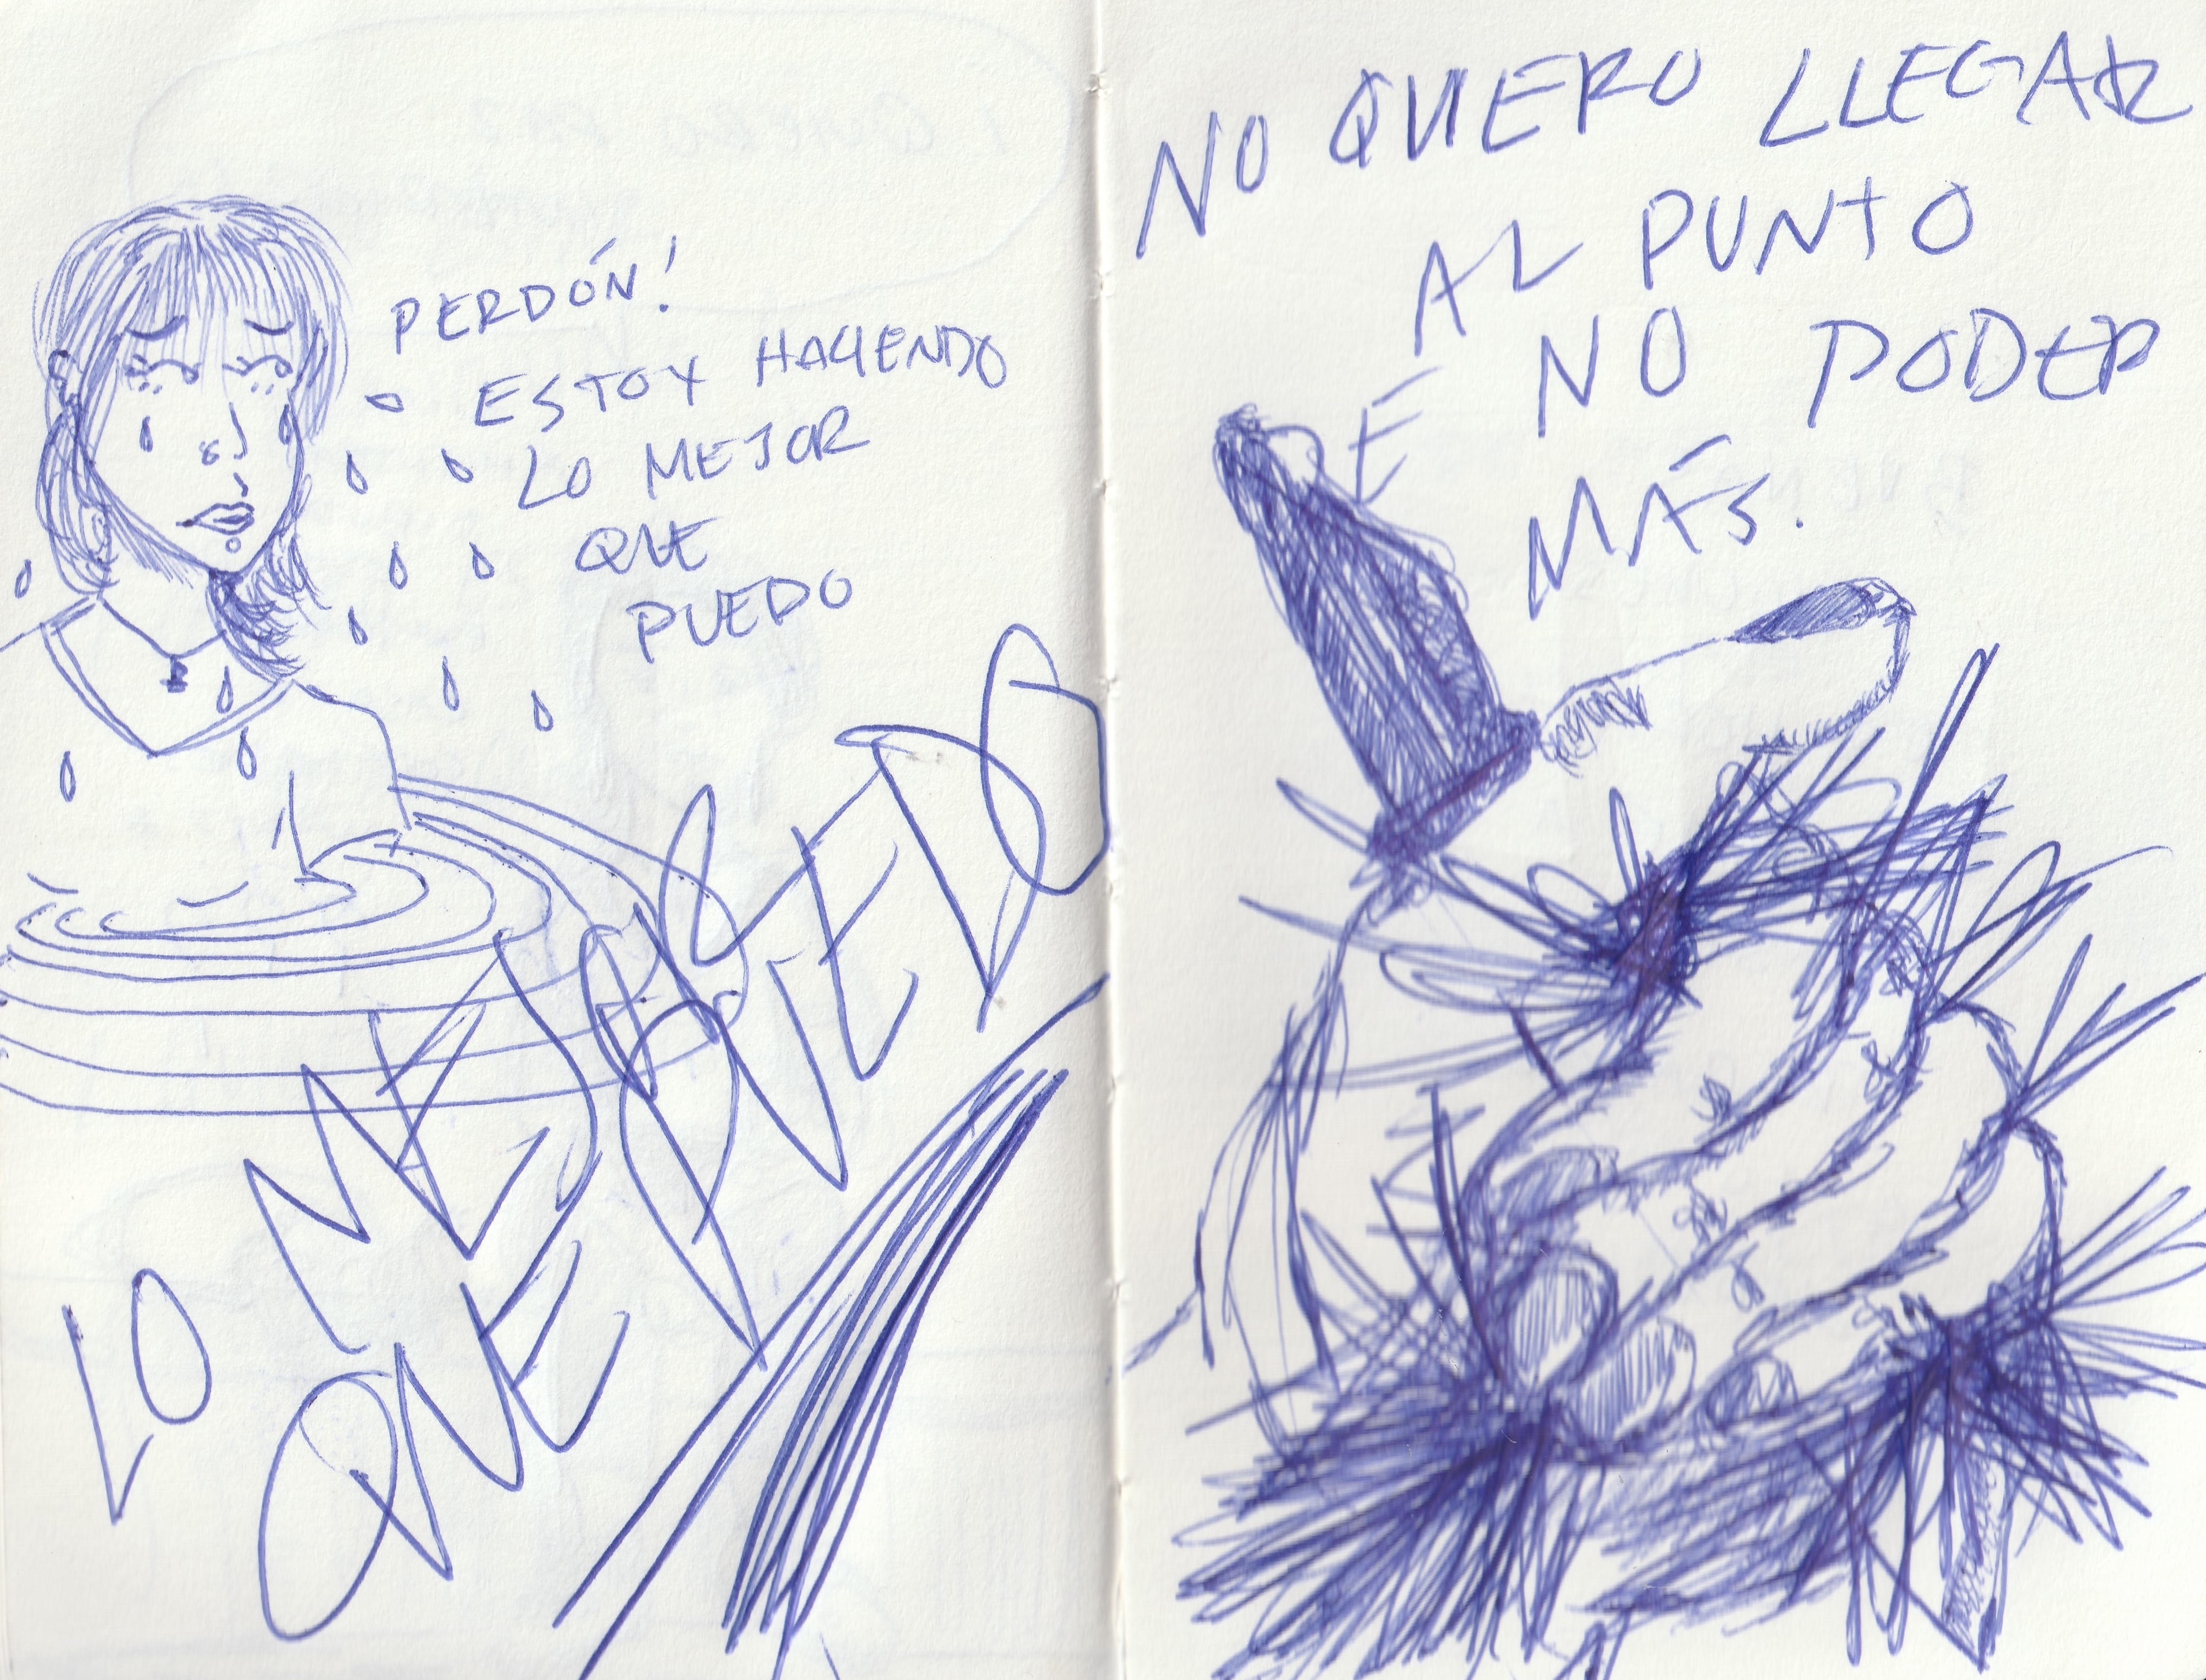 PERDÓN!
ESTOY HACIENDO
LO MEJOR
QUE
PUEDO
LO MEJOR
QUE PUEDO
NO QUIERO LLEGAR
AL PUNTO
E NO PODER
MÁS.